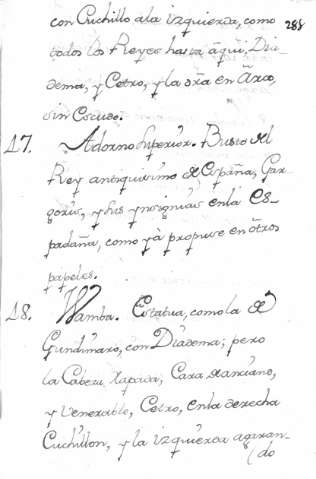 con Cuchillo ala izquierda, como 288
todos los Reyes hasta aqui, Dia-
dema, y Cetro, y la dra en Arco,
sin Escudo.
17. Adorno Superior. Busto del
Rey antiquisimo de España, Gar-
goris, y sus ynsignias enla Es-
padaña, como yà propuse en otros
papeles.
18. Wamba. Estatua, como la de
Gundimaro, con Diadema; pero
la Cabeza tapada, Cara de anciano,
y Venerable, Cetro, enla derecha
Cuchillon, y la izquierda agarran-
(do